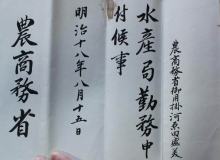 農商務省御用掛河原田盛美
水産局勤務申
付候事
明治十八年八月十五日
農商務省